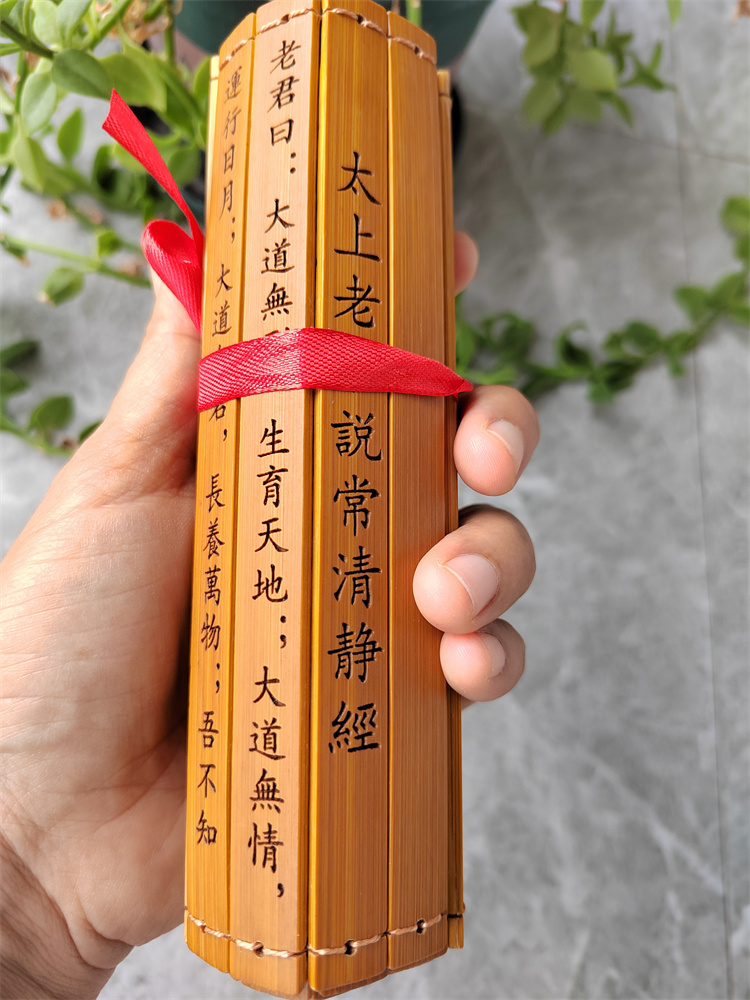 太上老 說常清静經
老君曰：大道無 生育天地；大道無情，
運行日月；大道 名，長養萬物；吾不知